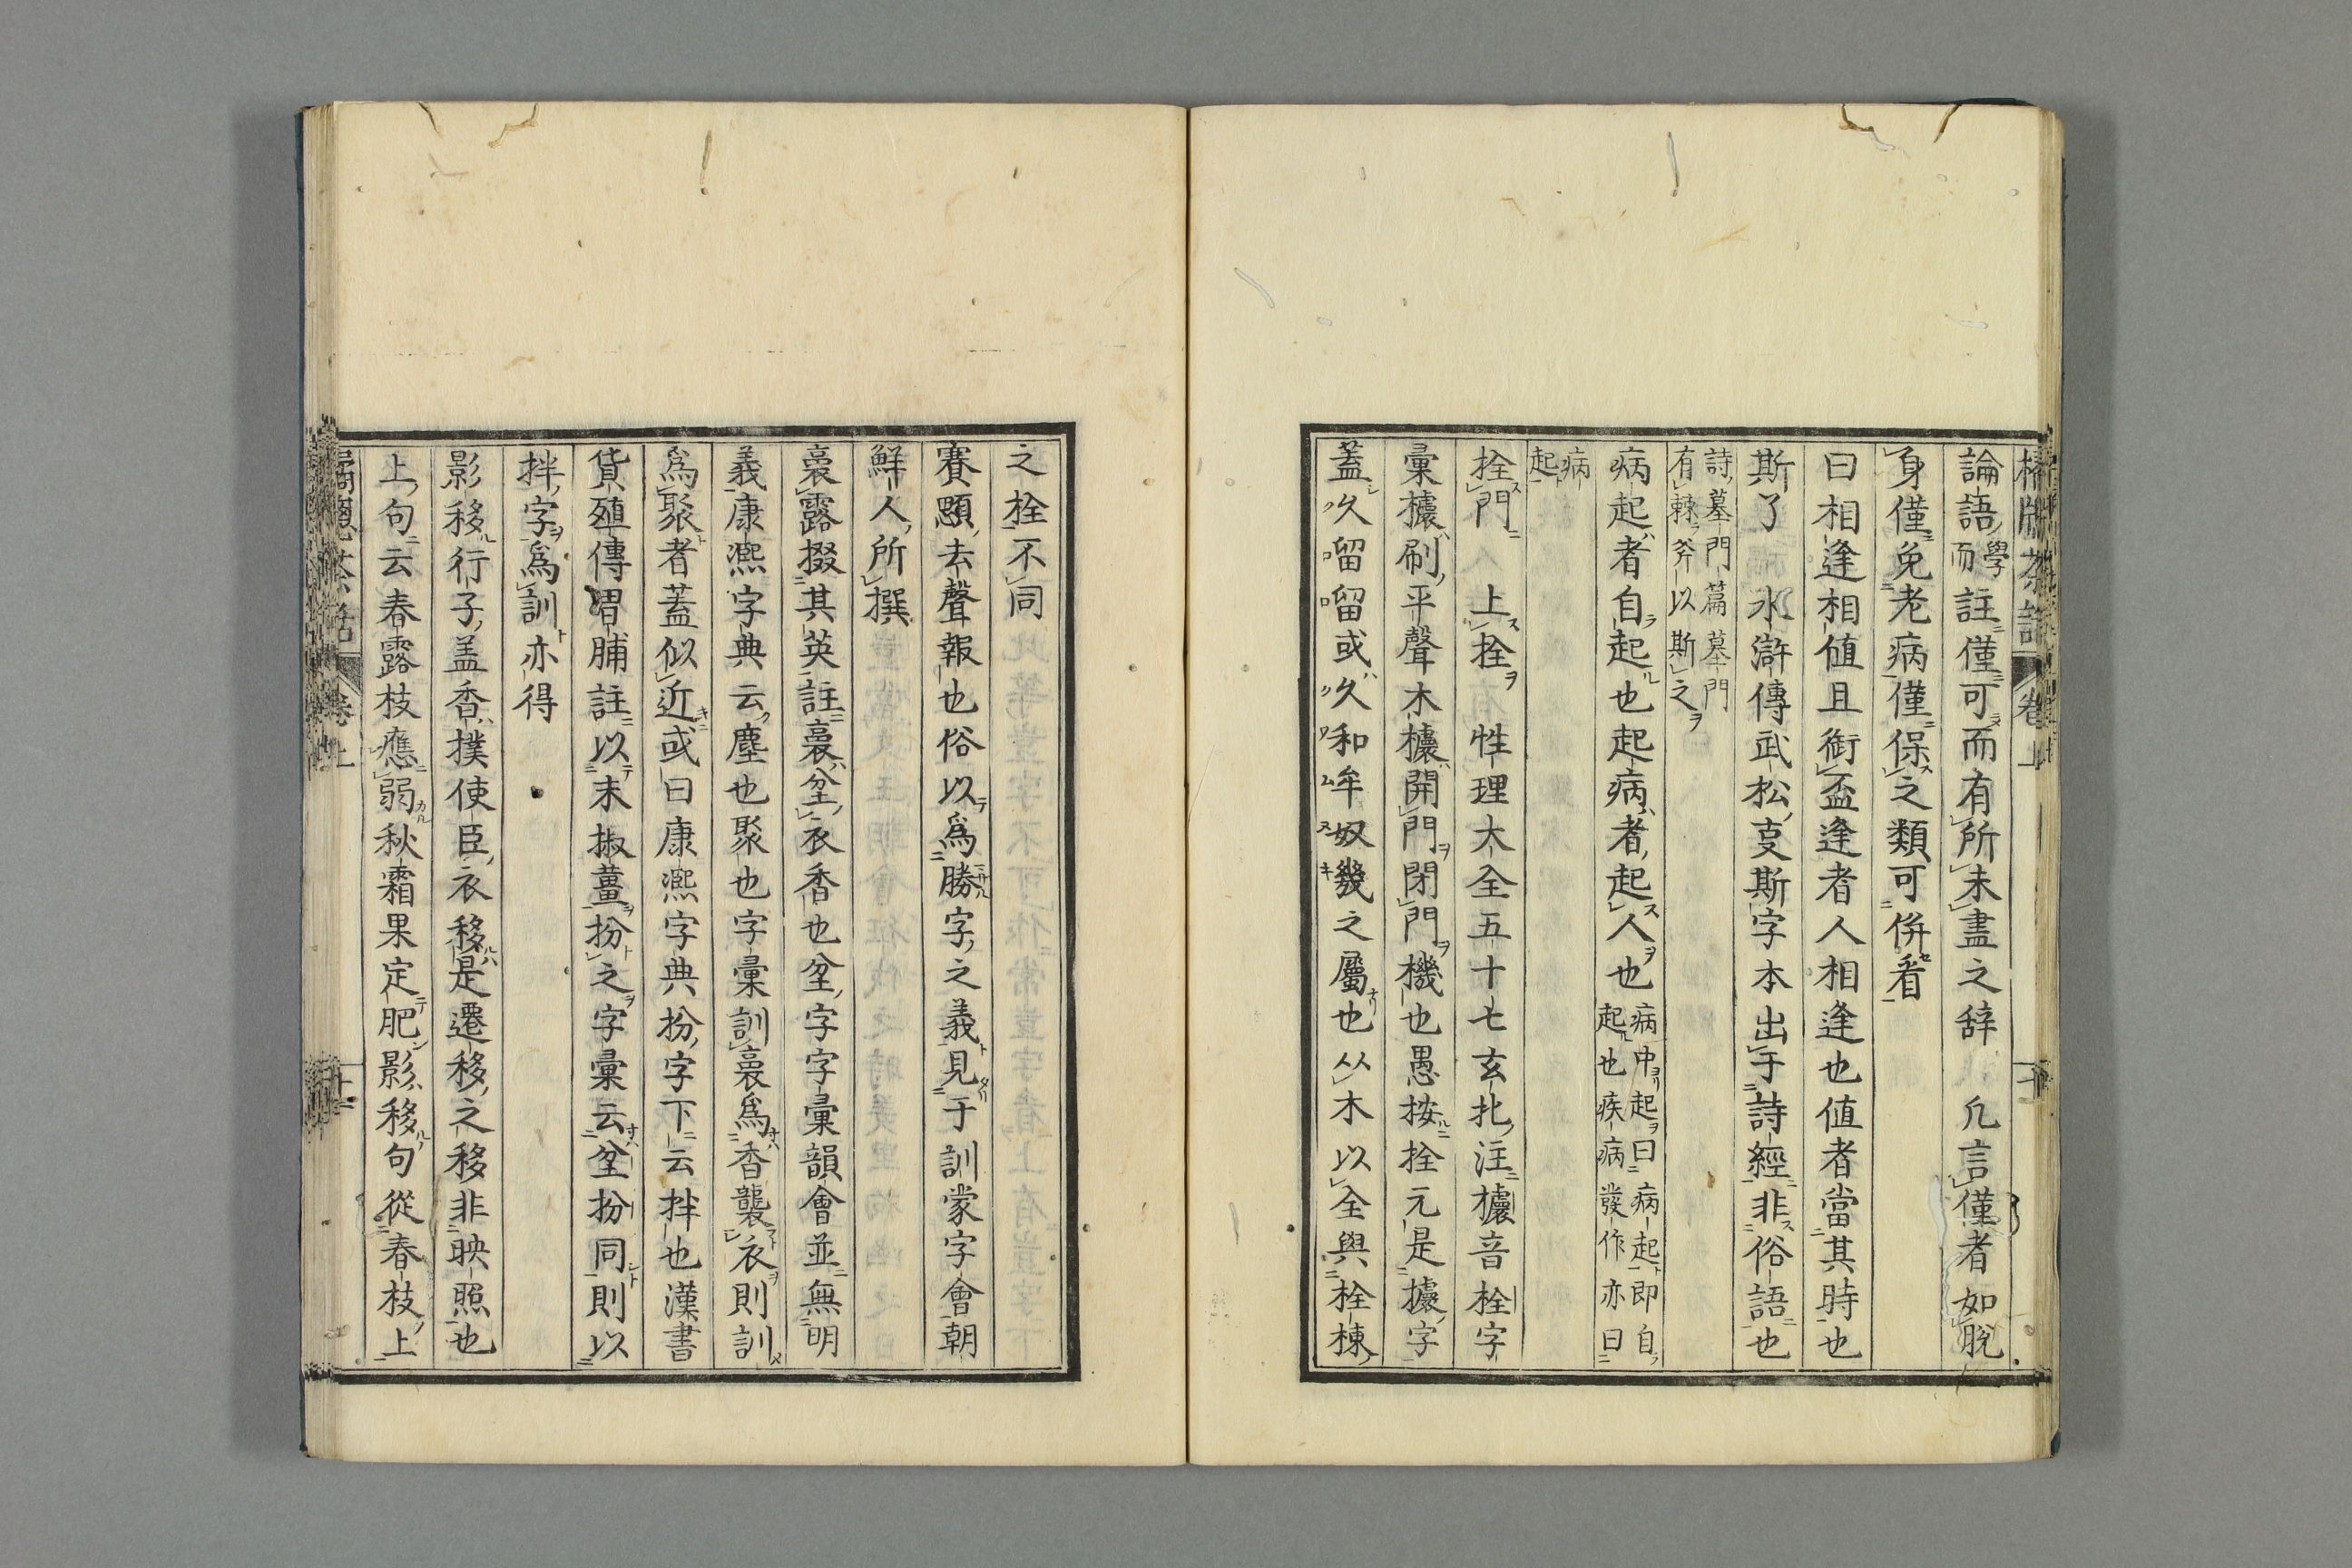 論語學而註僅可而有所未盡之辞 凡言僅者如脫
身僅免老病僅保之類可併看
曰相逢相値且銜盃逢者人相逢也値者當其時也
斯了 水滸傳武松支斯字本出于詩經非俗語也
詩墓門篇墓門
有棘斧以斯之
病起者自起也起病者起人也
病中起曰病起即自
起也疾病發作亦曰
病
起
拴門 上拴 性理大全五十七玄牝注櫦音栓字
彙櫦刷平聲木櫦開門閉門機也愚按拴元是櫦字
蓋久㗉㗉或久和哞奴幾之屬也从木以全與栓棟
之栓不同
賽顋去聲報也俗以爲勝字之義見于訓蒙字會朝
鮮人所撰
裛露掇其英註裛坌衣香也坌字字彙韻會並無明
義康熙字典云塵也聚也字彙訓裛爲香襲衣則訓
爲聚者蓋似近或曰康熙字典扮字下云拌也漢書
貨殖傳胃脯註以末椒薑扮之字彙云坌扮同則以
拌字爲訓亦得
影移行子盖香撲使臣衣移是遷移之移非映照也
上句云春露枝應弱秋霜果定肥影移句從春枝上
卷上